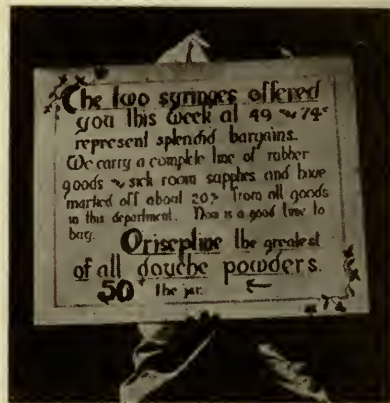 The two syringes offered
you this week at 49 ~ 74¢
represent splendid bargains.
We carry a complete line of rubber
goods ~ sick room supplies and have
marked off about 20% from all goods
in this department. Now is a good time to
buy.
Orisepline the greatest
of all douche powders.
50¢ the jar.